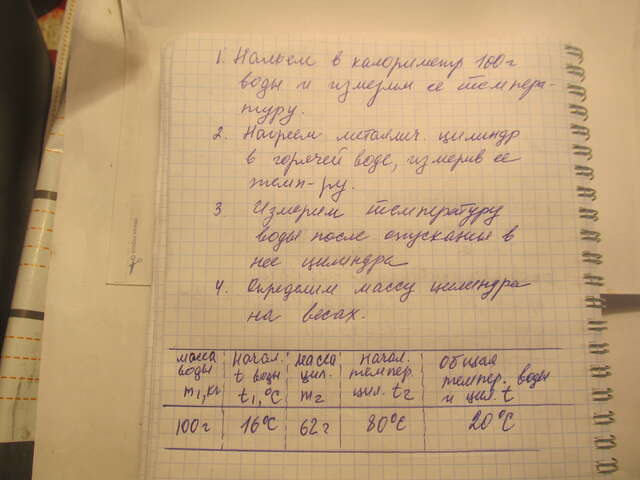 1. Нальем в калориметр 100 г
воды и измерим ее темпера-
туру.
2. Нагреем металлич. цилиндр
в горячей воде, измерив ее
темп-ру.
3. Измерим температуру
воды после опускания в
нее цилиндра
4. Определим массу цилиндра
на весах.
масса воды m₁, кг | Начал. t воды t₁, °C | масса цил. m₂ | Начал. темпер. цил. t₂ | Общая темпер. воды и цил. t
100 г | 16°C | 62 г | 80°C | 20°C